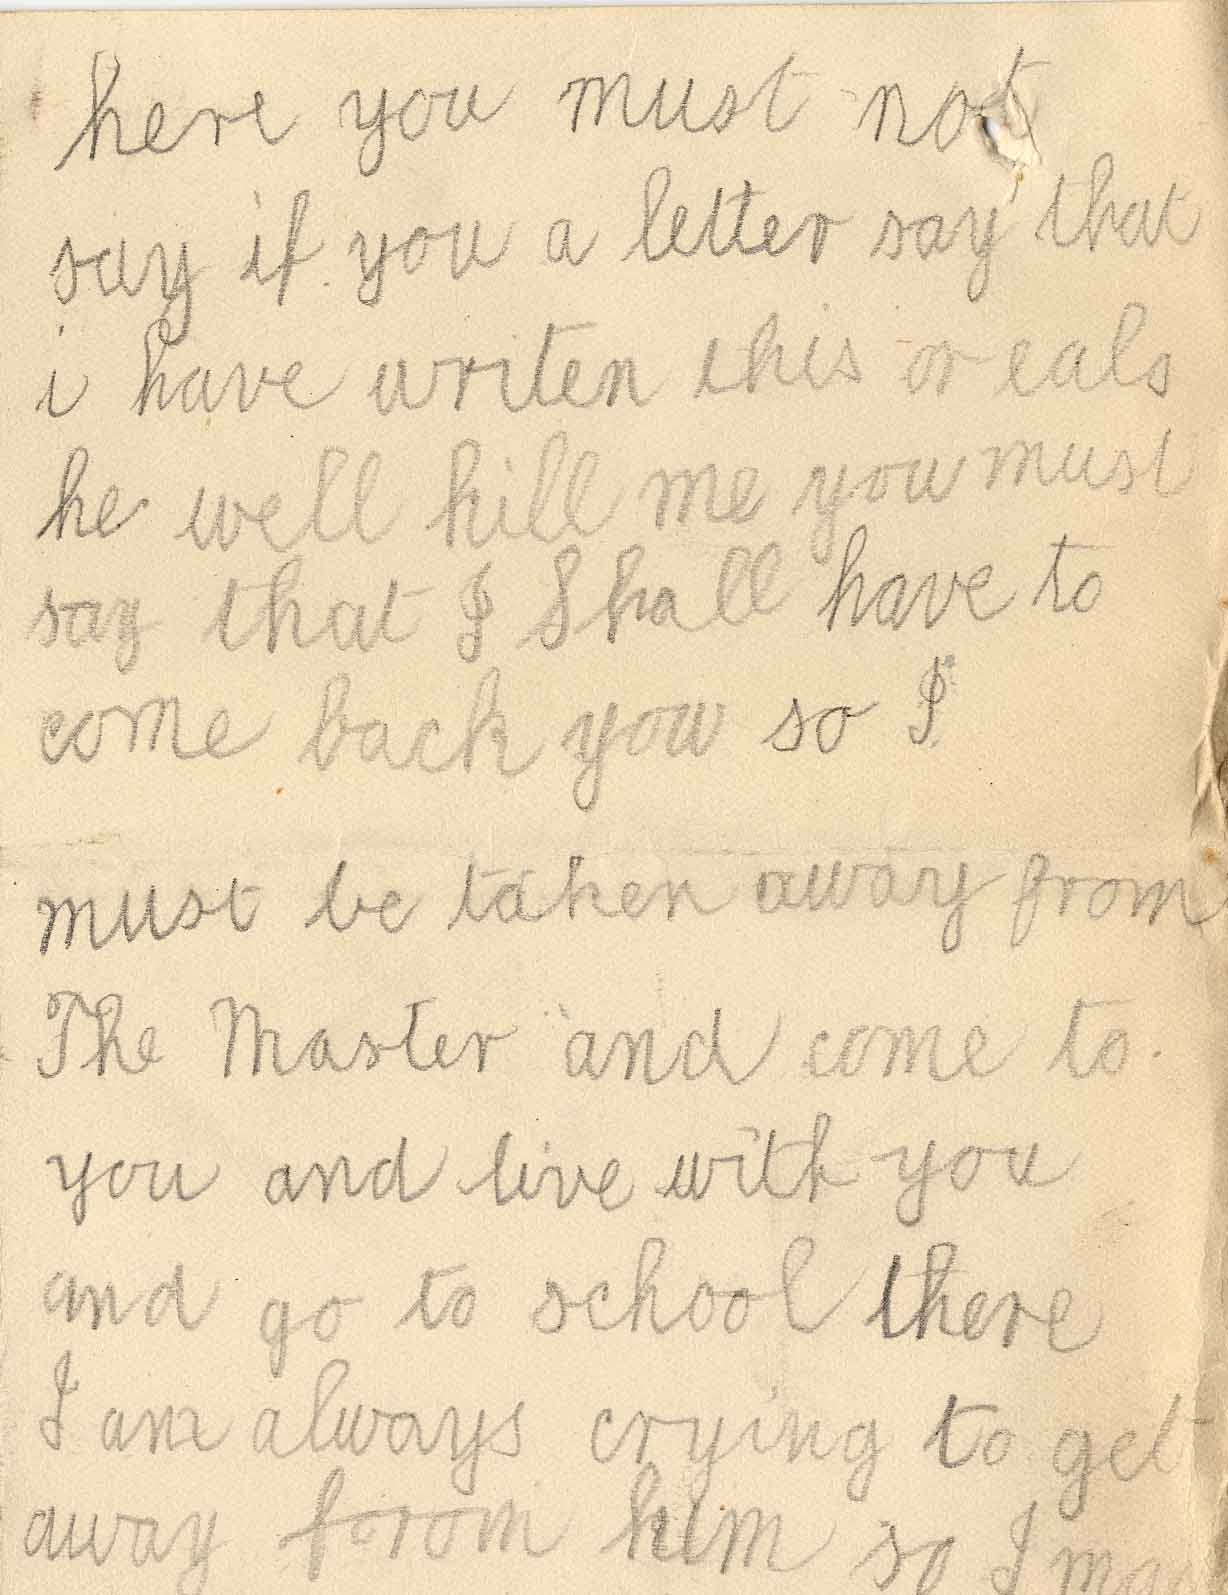 here you must not
say if you a letter say that
i have writen this or eals
he well kill me you must
say that I Shall have to
come back you so I
must be taken away from
The Master and come to
you and live with you
and go to school there
I am always crying to get
away from him so I